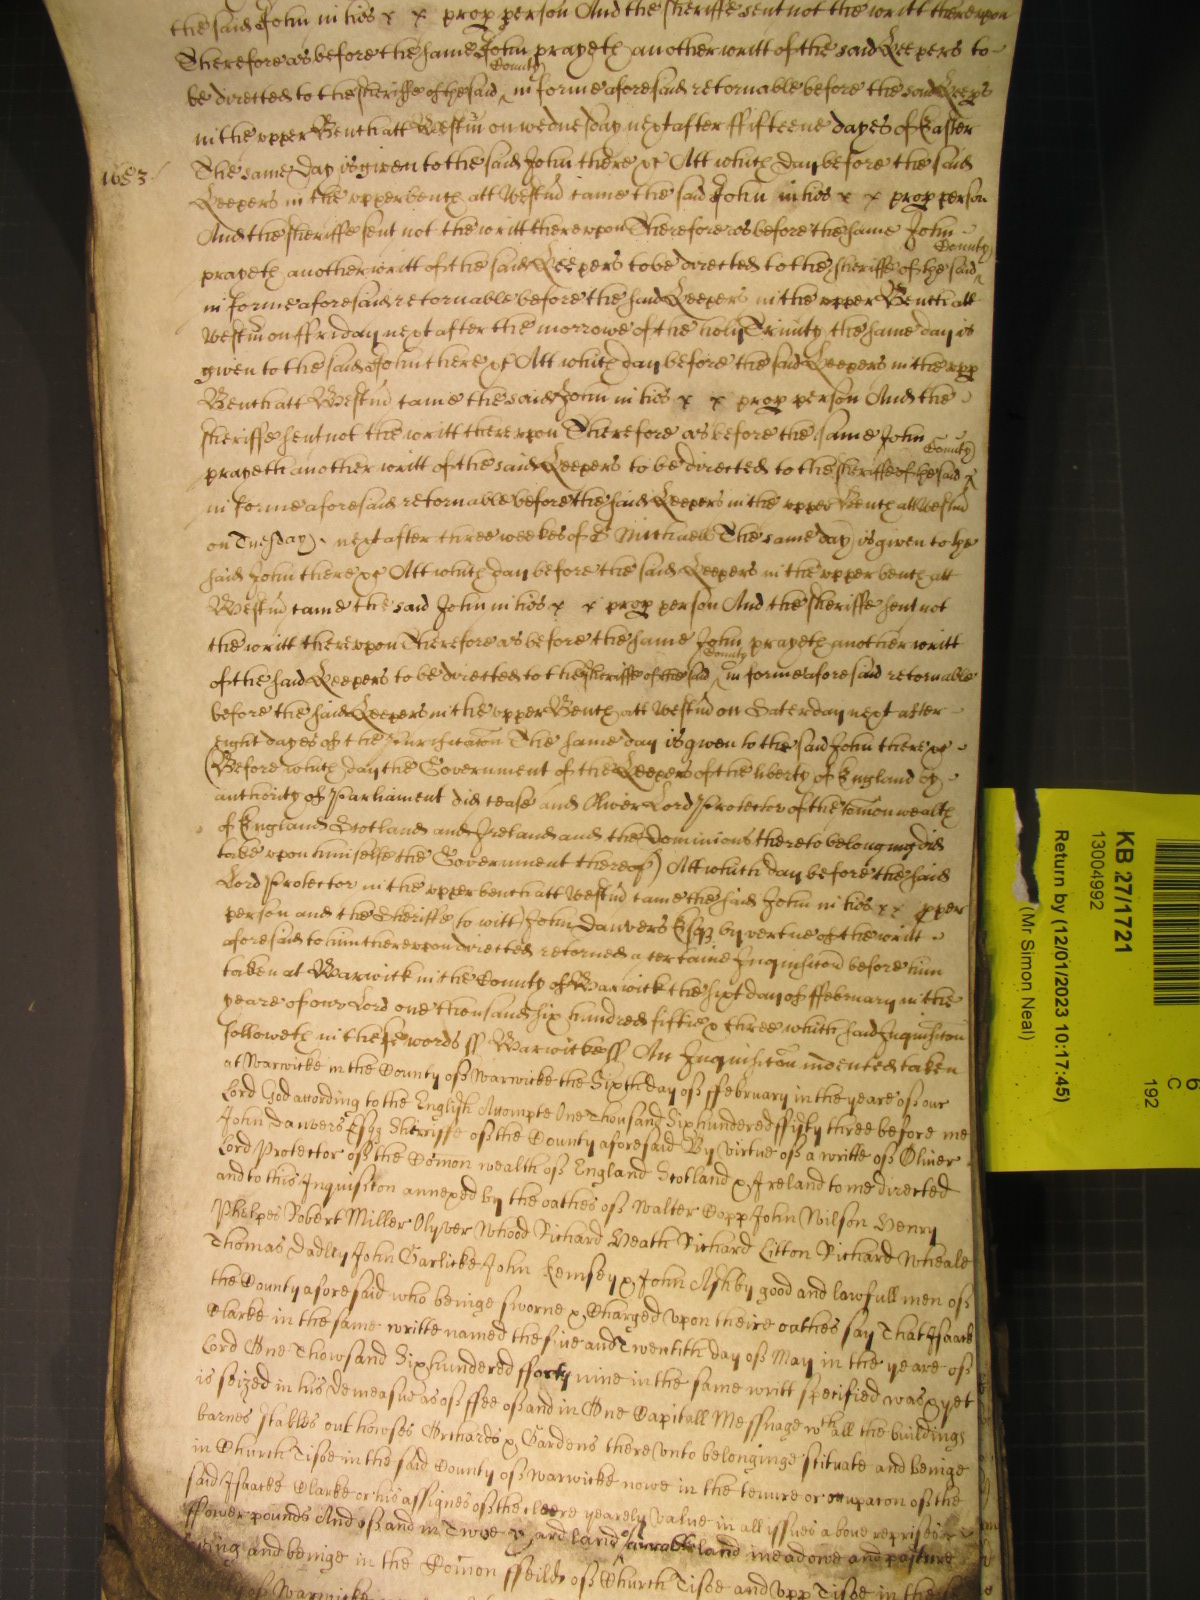 the said John in his x x prop person And the Sheriffe sent not the writt thereupon
Therefore as before the same John prayeth another writt of the said Keepers to
be directed to the Sheriffe of the said County in forme aforesaid retornable before the said Keeps
in the upper Bench att Westm on wednesday next after ffifteene dayes of Easter
1653
The same Day is given to the said John there &c Att which day before the said
Keepers in the upper bench att Westm came the said John in his x x prop person
And the Sheriffe sent not the writt thereupon Therefore as before the same John
prayeth another writt of the said Keepers to be directed to the Sheriffe of the said County
in forme aforesaid retornable before the said Keepers in the upper Bench att
Westm on ffriday next after the morrowe of the holy Trinity the same day is
given to the said John there &c Att which day before the said Keepers in the upp
Bench att Westm came the said John in his x x prop person And the
Sheriffe sent not the writt thereupon Therefore as before the same John
prayeth another writt of the said Keepers to be directed to the Sheriffe of the said County
in forme aforesaid retornable before the said Keepers in the upper Bench att Westm
on Tuesday next after three weekes of S Michaell The same day is given to the
said John there &c Att which day before the said Keepers in the upper bench att
Westm came the said John in his x x prop person And the Sheriffe sent not
the writt thereupon Therefore as before the same John prayeth another writt
of the said Keepers to be directed to the Sheriffe of the said County in forme aforesaid retornable
before the said Keepers in the upper Bench att Westm on Saterday next after
eight dayes of the Purificacon The same day is given to the said John there &c
(Before which day the Government of the Keepers of the liberty of England by
authority of Parliament did cease and Oliver Lord Protector of the Comonwealth
of England Scotland and Ireland and the Dominions thereto belonging did
take upon himselfe the Government thereof) Att which day before the said
Lord Protector in the upper bench att Westm came the said John in his x x pper
person and the Sheriffe to witt John Danvers Esqz by vertue of the writt
aforesaid to him thereupon directed retorned a certaine Inquisicon before him
taken at Warwick in the County of Warwick the sixt day of ffebruary in the
yeare of our Lord one thousand six hundred fiftie & three which said Inquisicon
followeth in these words ss Warwicke ss An Inquisicon indented taken
at Warwicke in the County of Warwicke the Sixth day of ffebruary in the yeare of our
Lord God according to the English Accompte One Thousand Six hundered ffifty three before me
John Danvers Esqz Sherriffe of the County aforesaid By virtue of a writte of Oliver
Lord Protector of the Comon wealth of England Scotland & Ireland to me directed
and to this Inquisicon annexed by the oathes of Walter Copp John Wilson Henry
Phelpes Robert Miller Olyver Whood Richard Heath Richard Litton Richard Wheale
Thomas Dadley John Garlicke John Kemsey & John Ashby good and lawfull men of
the County aforesaid who beinge sworne & Charged upon theire oathes say That Isaack
Clarke in the same writte named the five and Twentith day of May in the yeare of
Lord One Thowsand Six hundered fforty nine in the same writt specified was & yet
is seized in his demeasne as of ffee of and in One Capitall Messuage wth all the buildings
barnes stables out howses Orchards & Gardens there unto belonginge scituate and beinge
in Church Tisoe in the said County of Warwicke nowe in the tenure or occupacon of the
said Isaacke Clarke or his assignes of the cleere yearely value in all yssues above reprises
ffower pounds And of and in Twoe yard land of arrable land meadowe and pasture
and beinge in the Comon ffeilds of Church Tisoe and Upp Tisoe in the
of Warwicke
KB 27/1721
13004992
Return by (12/01/2023 10:17:45)
(Mr Simon Neal)
6
C
192